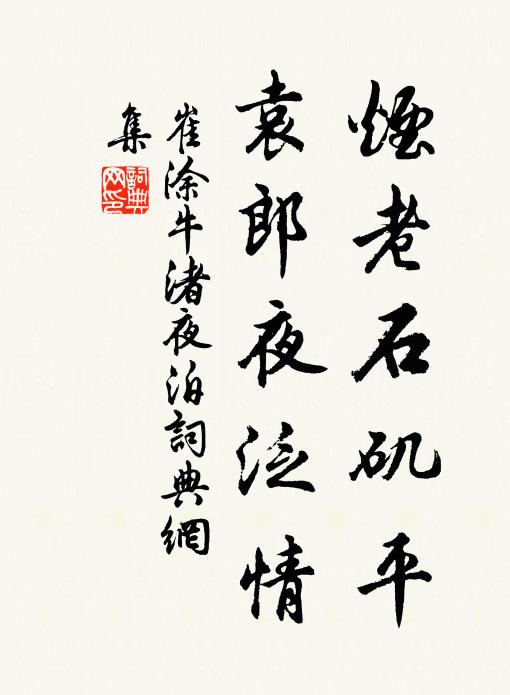 煙老石矶平
袁郎夜泛情
崔涂牛渚夜泊詞典網
集
詞典
网印